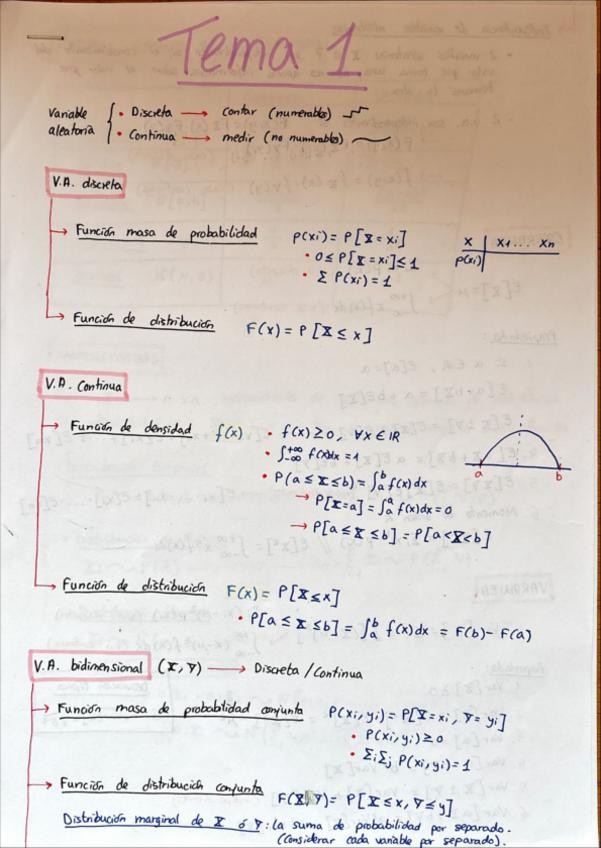 Tema 1
Variable aleatoria { • Discreta → contar (numerables)
• Continua → medir (no numerables)
V.A. discreta
→ Función masa de probabilidad p(xi) = P[X = xi]
• 0 ≤ P[X = xi] ≤ 1
• Σ P(xi) = 1
x | x1 .... xn
p(xi) |
→ Función de distribución F(x) = P[X ≤ x]
V.A. Continua
→ Función de densidad f(x) • f(x) ≥ 0, ∀x ∈ IR
• ∫-∞+∞ f(x)dx = 1
• P(a ≤ X ≤ b) = ∫ab f(x)dx
→ P[X = a] = ∫aa f(x)dx = 0
→ P[a ≤ X ≤ b] = P[a < X < b]
a b
→ Función de distribución F(x) = P[X ≤ x]
• P[a ≤ X ≤ b] = ∫ab f(x)dx = F(b) - F(a)
V.A. bidimensional (X, Y) → Discreta / Continua
→ Función masa de probabilidad conjunta P(xi, yi) = P[X = xi, Y = yi]
• P(xi, yi) ≥ 0
• Σi Σj P(xi, yi) = 1
→ Función de distribución conjunta F(X, Y) = P[X ≤ x, Y ≤ y]
Distribución marginal de X ó Y: la suma de probabilidad por separado.
(Considerar cada variable por separado).